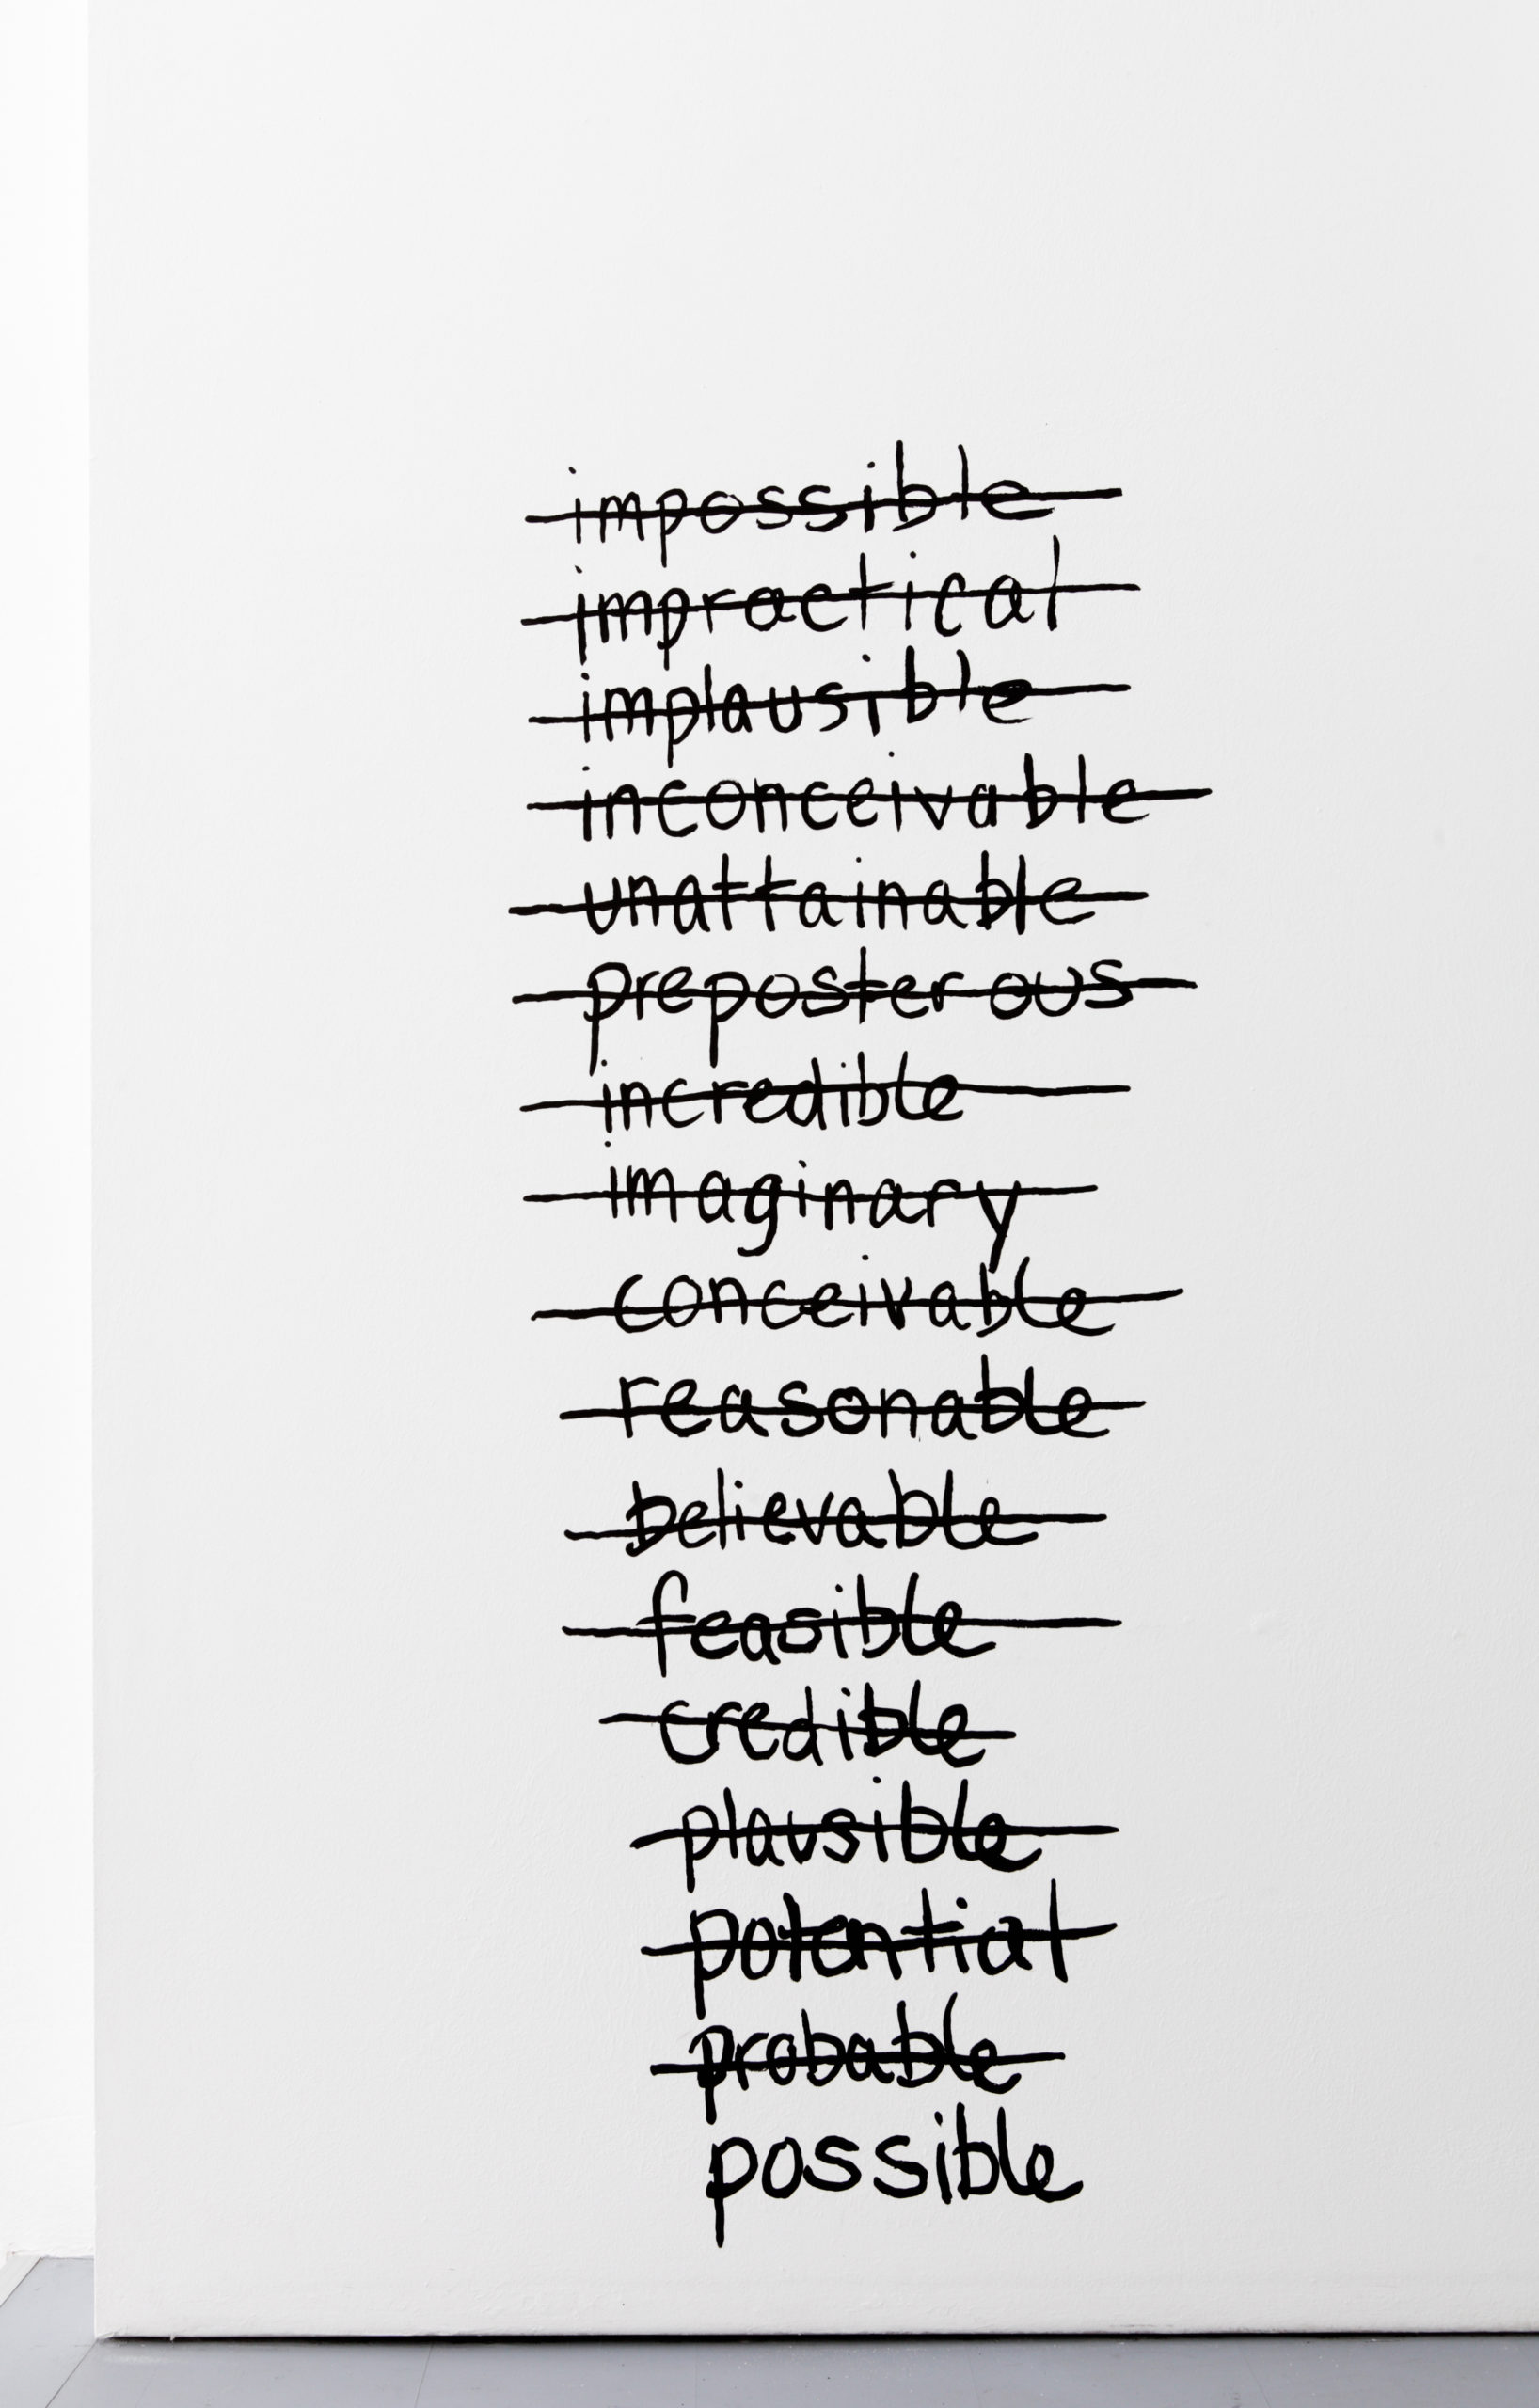 impossible
impractical
implausible
inconceivable
unattainable
preposterous
incredible
imaginary
conceivable
reasonable
believable
feasible
credible
plausible
potential
probable
possible